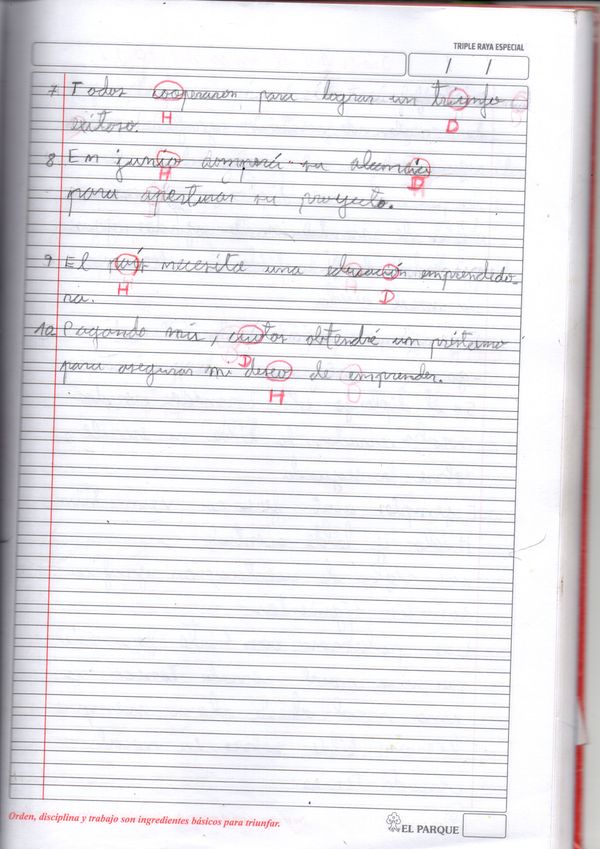 TRIPLE RAYA ESPECIAL
/ /
7 Todos cooperaron para lograr un triunfo
exitoso.
H D
8 En junio romperá su alcancía
H D
para aperturar su proyecto.
9 El país necesita una educación emprendedo-
ra.
H D
10 Pagando mis, obtendré un préstamo
para asegurar mi deseo de emprender.
D
H
Orden, disciplina y trabajo son ingredientes básicos para triunfar.
EL PARQUE